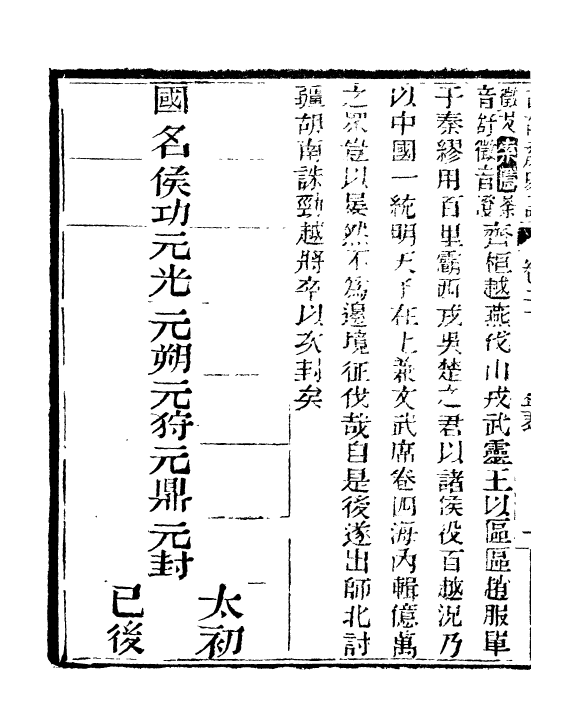 徵艾索隱荼
音舒徵音澄
齊桓越燕伐山戎武靈王以區區趙服單
于秦繆用百里霸西戎吳楚之君以諸侯役百越況乃
以中國一統明天子在上兼文武席卷四海內輯億萬
之眾豈以晏然不為邊境征伐哉自是後遂出師北討
彊胡南誅勁越將卒以次封矣
國名
侯功
元光
元朔
元狩
元鼎
元封
太初
已後